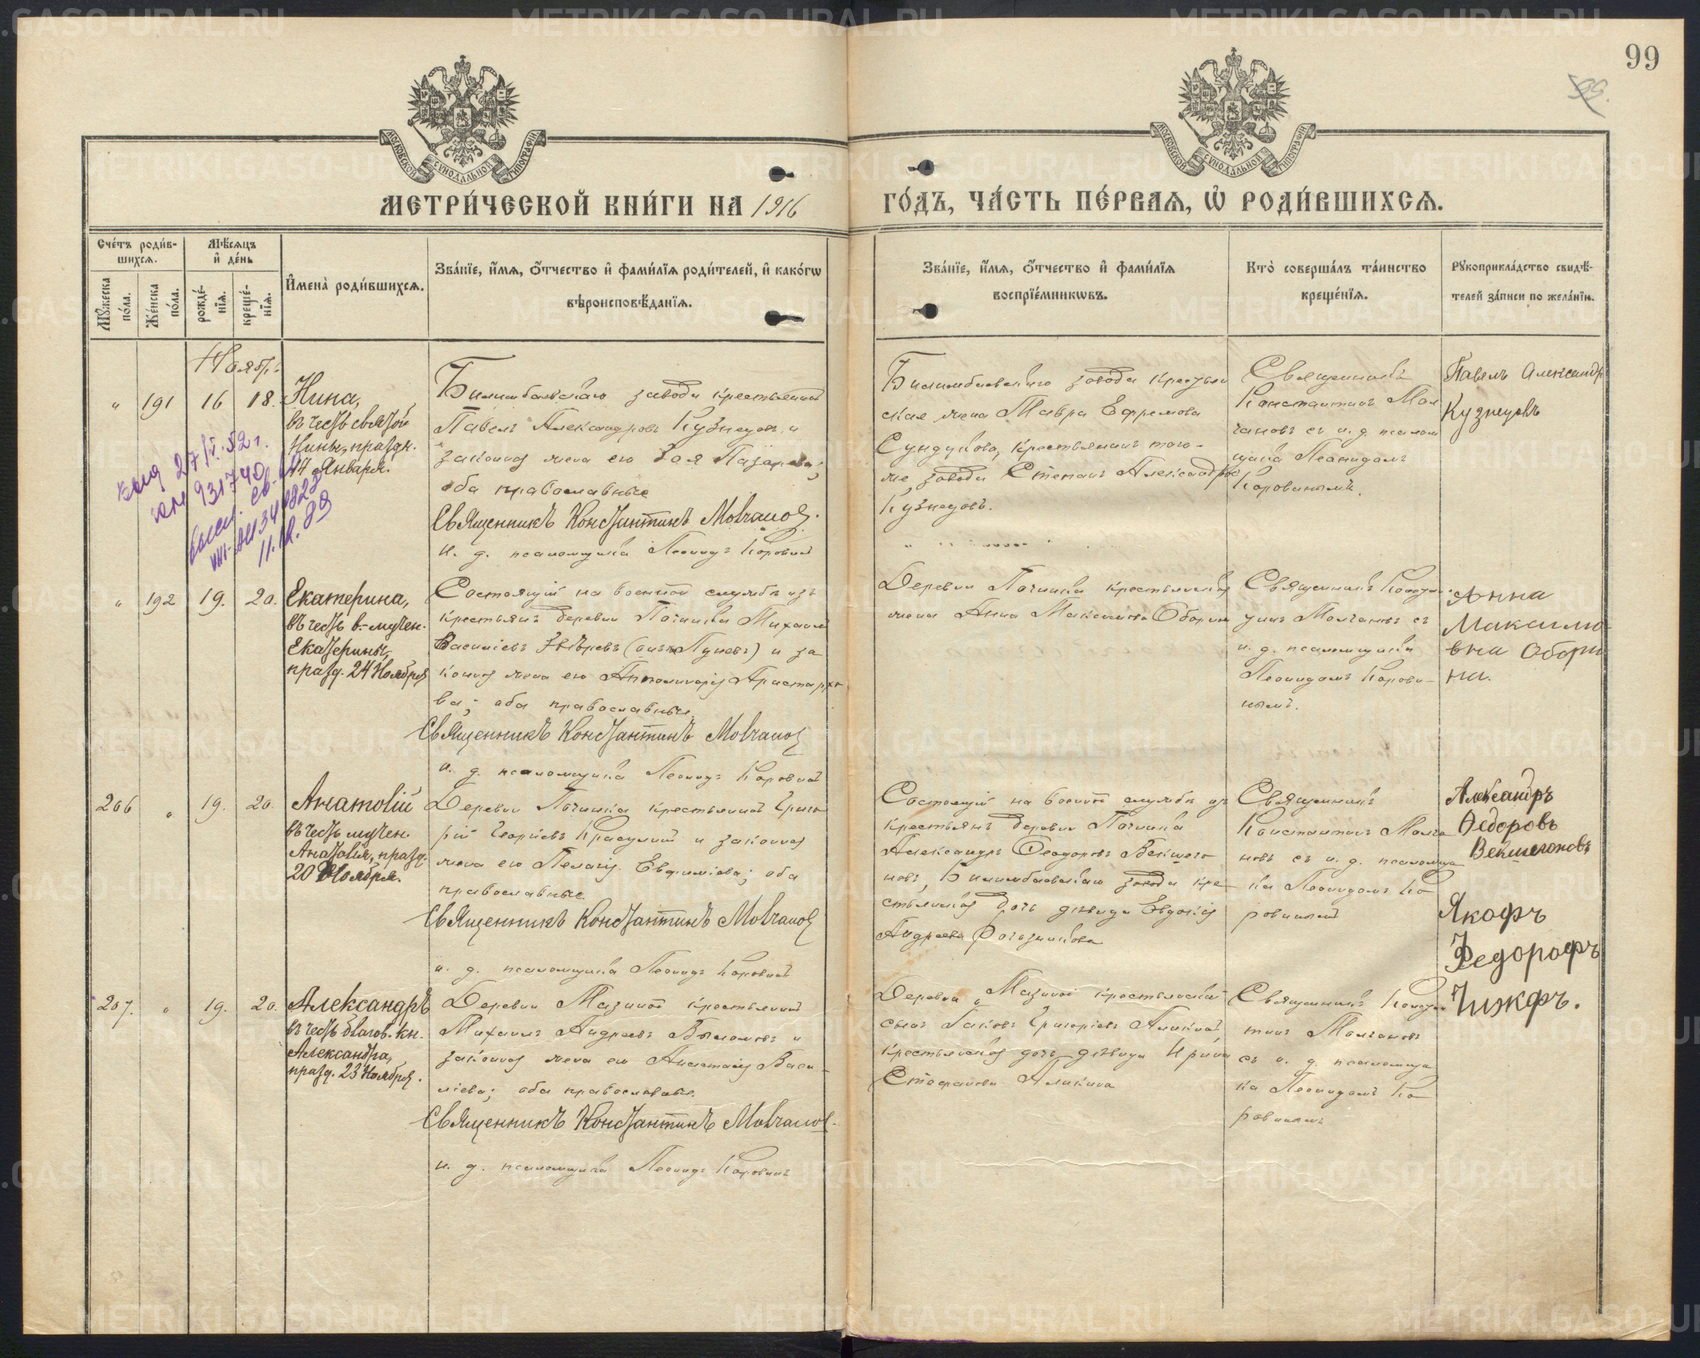 99
99.
МОСКОВСКОЙ СУНОДАЛЬНОЙ ТИПОГРАФІИ
МОСКОВСКОЙ СУНОДАЛЬНОЙ ТИПОГРАФІИ
МЕТРИ́ЧЕСКОЙ КНИ́ГИ НА 1916 ГО́ДЪ, ЧА́СТЬ ПЕ́РВАѦ, Ѡ҆ РОДИ́ВШИХСѦ.
Сче́тъ роди́в-
шихсѧ.
Мꙋ́жеска по́ла.
Же́нска по́ла.
Мѣ́сѧцъ
и҆ де́нь
рожде́-
нїѧ.
креще́-
нїѧ.
И҆мена̀ роди́вшихсѧ.
Зва́нїе, и҆́мѧ, ѻ҆́тчество и҆ фами́лїѧ роди́телей, и҆ како́гѡ
вѣроисповѣ́данїѧ.
Зва́нїе, и҆́мѧ, ѻ҆́тчество и҆ фами́лїѧ
воспрїе́мникѡвъ.
Кто̀ соверша́лъ та́инство
креще́нїѧ.
Рꙋкоприкла́дство свидѣ́-
телей за́писи по жела́нїю.
Ноябрь
" 191 16 18. Нина,
въ честь святой
Нины, праздн.
14 Января.
Билимбаевскаго завода крестьянинъ
Павелъ Александровъ Кузнецовъ и
законная жена его Зоя Лазарева;
оба православные
Священникъ Константинъ Молчановъ.
и. д. псаломщика Леонидъ Коровинъ
Билимбаевскаго завода крестьян
ская жена Мавра Ефремова
Сундукова, крестьянинъ того-
же завода Степанъ Александров
Кузнецовъ.
Священникъ
Константинъ Мол
чановъ съ и. д. псалом
щика Леонидомъ
Коровинымъ.
Павелъ Александр
Кузнецовъ
27/IV. 52 г.
931740
11.
" 192 19. 20. Екатерина,
въ честь в.-мучен.
Екатерины,
празд. 24 Ноября
Состоящій на военной службѣ изъ
крестьянъ деревни Починка Михаилъ
Василіевъ
законная жена его Апполинарія Аристархо
ва; оба православные
Священникъ Константинъ Молчановъ
и. д. псаломщика Леонидъ Коровинъ
Деревни Починка крестьянская
жена Анна Максимова Оборин
Священникъ Констан
тинъ Молчановъ съ
и. д. псаломщика
Леонидомъ Корови-
нымъ.
Анна
Максимо
вна Обори
на.
206 " 19. 20. Анатолій
въ честь мучен.
Анатолія, празд.
20 Ноября.
Деревни Починка крестьянинъ Григо
рій Георгіевъ и законная
жена его Пелагія Евфиміева; оба
православные
Священникъ Константинъ Молчановъ
и. д. псаломщика Леонидъ Коровинъ
Состоящій на военной службѣ из
крестьянъ деревни Починка
Александръ Ѳеодоровъ Векшего
новъ, Билимбаевскаго завода кре-
стьянская дочь дѣвица Евдокія
Андреева
Священникъ
Константинъ Молча
новъ съ и. д. псаломщи
ка Леонидомъ Ко-
ровинымъ
Александръ
Ѳедоровъ
Векшегоновъ
207. " 19. 20. Александръ
въ честь благов. кн.
Александра,
празд. 23 Ноября.
Деревни Мазиной крестьянинъ
Михаилъ Андреевъ и
законная жена его Анастасія Васи-
ліева; оба православные.
Священникъ Константинъ Молчановъ.
и. д. псаломщика Леонидъ Коровинъ
Деревни Мазиной крестьянскій
сынъ Іаковъ Григорьевъ Аликинъ
крестьянская дочь дѣвица Ирина
Стефанова Аликина
Священникъ Констан
тинъ Молчановъ
съ и. д. псаломщи
ка Леонидомъ Ко-
ровинымъ
Якофъ
Федорофъ
Чижфъ.
METRIKI.GASO-URAL.RU